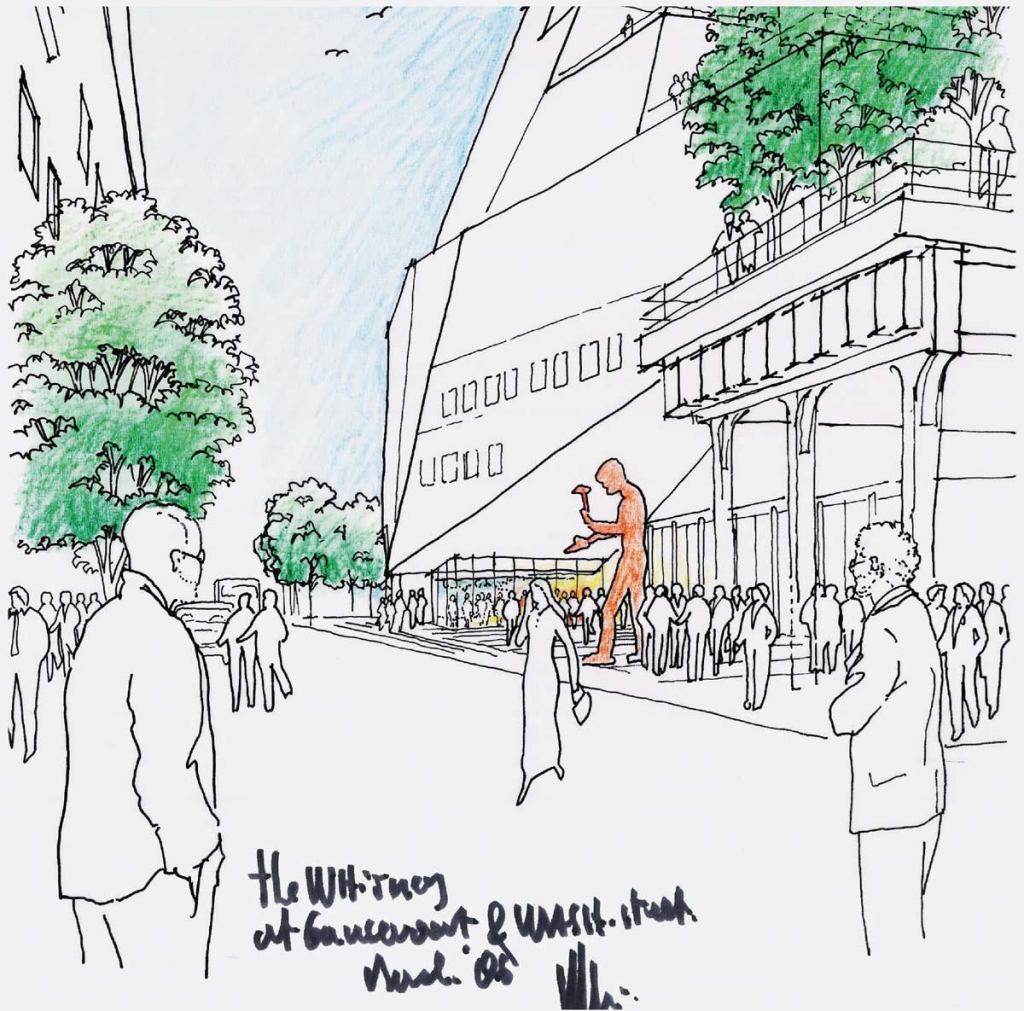 the WHITNEY
at Gansevoort & WASH. street
'08